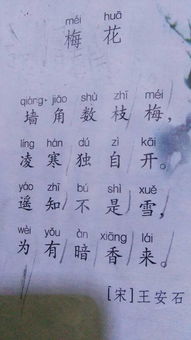 méi huā
梅 花
qiáng jiǎo shù zhī méi
墙 角 数 枝 梅，
líng hán dú zì kāi
凌 寒 独 自 开。
yáo zhī bú shì xuě
遥 知 不 是 雪，
wèi yǒu àn xiāng lái
为 有 暗 香 来。
[宋]王安石